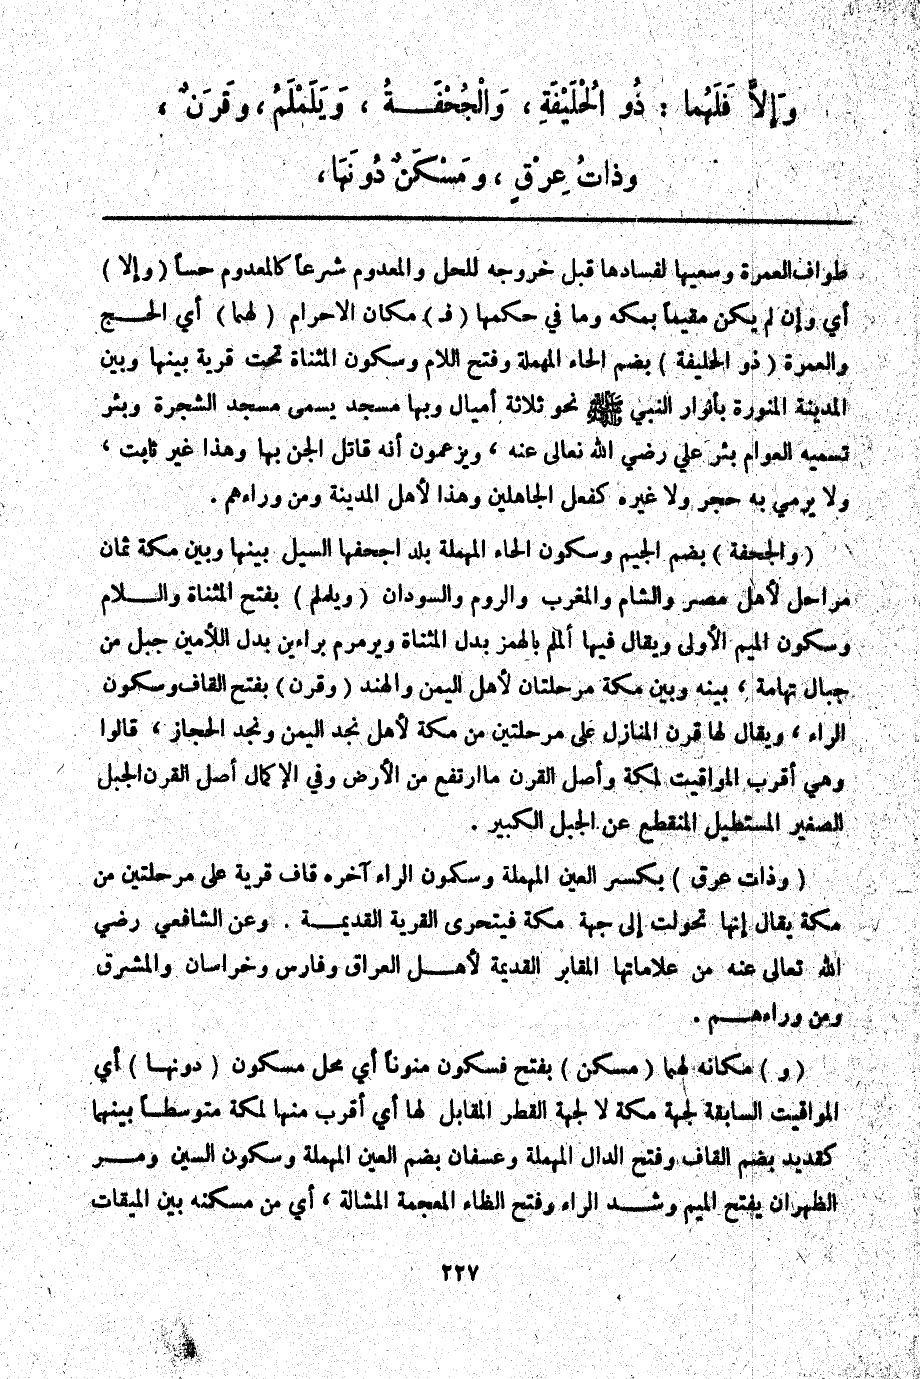 وَإِلاَّ فَلَهُما : ذُو الْحُلَيْفَةِ ، وَالْجُحْفَـــةُ ، وَيَلَمْلَمُ ، وقَرَنٌ ،
وذاتُ عِرْقٍ ، ومَسْكَنٌ دُونَهَا ،
طواف العمرة وسعيها لفسادها قبل خروجه للحل والمعدوم شرعاً كالمعدوم حساً ( وإلا )
أي وإن لم يكن مقيماً بمكه وما في حكمها ( فـ ) مكان الاحرام ( لهما ) أي الحـــج
والعمرة ( ذو الحليفة ) بضم الحاء المهملة وفتح اللام وسكون المثناة تحت قرية بينها وبين
المدينة المنورة بأنوار النبي ﷺ نحو ثلاثة أميال وبها مسجد يسمى مسجد الشجرة وبئر
تسميه العوام بئر علي رضي الله تعالى عنه ، ويزعمون أنه قاتل الجن بها وهذا غير ثابت ،
ولا يرمي به حجر ولا غيره كفعل الجاهلين وهذا لأهل المدينة ومن وراءهم .
( والجحفة ) بضم الجيم وسكون الحاء المهملة بلد اجحفها السيل بينها وبين مكة ثمان
مراحل لأهل مصر والشام والمغرب والروم والسودان ( ويلملم ) بفتح المثناة والـــلام
وسكون الميم الأولى ويقال فيها ألملم بالهمز بدل المثناة ويرمرم براءين بدل اللأمين جبل من
جبال تهامة ، بينه وبين مكة مرحلتان لأهل اليمن والهند ( وقرن ) بفتح القاف وسكون
الراء ، ويقال لها قرن المنازل على مرحلتين من مكة لأهل نجد اليمن ونجد الحجاز ، قالوا
وهي أقرب المواقيت لمكة وأصل القرن ماارتفع من الأرض وفي الإكمال أصل القرن الجبل
الصغير المستطيل المنقطع عن الجبل الكبير .
( وذات عرق ) بكسر العين المهملة وسكون الراء آخره قاف قرية على مرحلتين من
مكة يقال إنها تحولت إلى جهة مكة فيتحرى القرية القديمـــة . وعن الشافعي رضي
الله تعالى عنه من علاماتها المقابر القديمة لأهـــل العراق وفارس وخراسان والمشرق
ومن وراءهـــم .
( و ) مكانه لهما ( مسكن ) بفتح فسكون منوناً أي محل مسكون ( دونهـا ) أي
المواقيت السابقة لجهة مكة لا لجهة القطر المقابل لها أي أقرب منها لمكة متوسطـاً بينها
كقديد بضم القاف وفتح الدال المهملة وعسفان بضم العين المهملة وسكون السين ومـــر
الظهران يفتح الميم وشـــد الراء وفتح الظاء المعجمة المشالة ، أي من مسكنه بين الميقات
٢٢٧